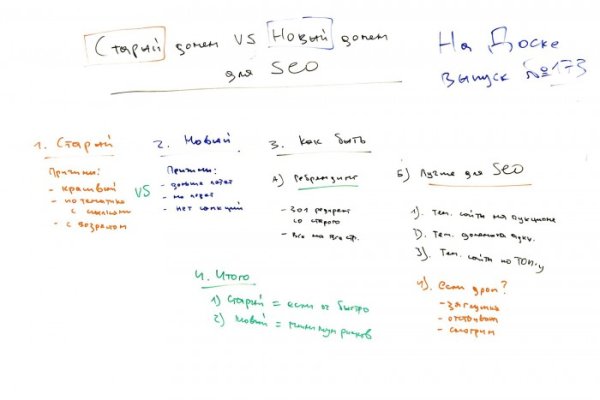 Старый домен VS Новый домен
для SEO
На Доске
выпуск №173
1. Старый
Причины:
- красивый
- по тематике
с ссылками
- с возрастом
VS
2. Новый
Причины:
- дольше
- не
- нет санкций
3. Как быть
А) Ребрендинг
- 301 редирект
со старого
- Все на все стр.
Б) Лучше для SEO
1). Тем. сайты на аукционе
2). Тем. домены аукц.
3). Тем. сайты по ТОП-у
4). если дроп?
- заглушка
- отстаивание
- смотрим
4. Итого
1) Старый = если оч быстро
2) Новый = минимум рисков